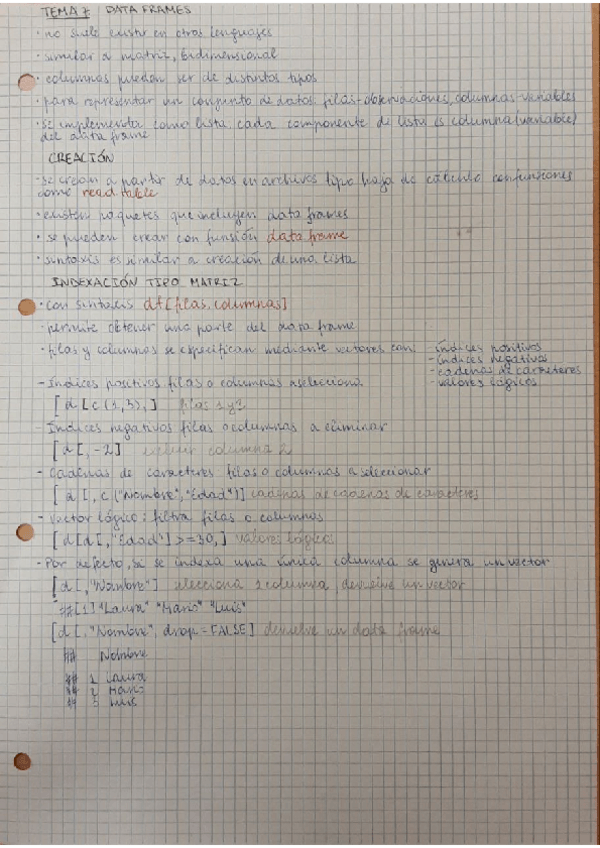 TEMA 7 DATA FRAMES
· no suele existir en otros lenguajes
· similar a matriz, bidimensional
· columnas pueden ser de distintos tipos
· para representar un conjunto de datos: filas-observaciones, columnas-variables
· se implementa como lista: cada componente de lista es columna (variable)
del data frame
CREACIÓN
· se crean a partir de datos en archivos tipo hoja de cálculo con funciones
como read.table
· existen paquetes que incluyen data frames
· se pueden crear con función data.frame
· sintaxis es similar a creación de una lista
INDEXACIÓN TIPO MATRIZ
· Con sintaxis df[filas, columnas]
· permite obtener una parte del data frame
· filas y columnas se especifican mediante vectores con: - índices positivos
- índices negativos
- cadenas de caracteres
- valores lógicos
- Índices positivos filas o columnas a selecciona
[d[c(1,3),] filas 1 y 3
- Índices negativos filas o columnas a eliminar
[d[,-2] excluir columna 2
- Cadenas de caracteres filas o columnas a seleccionar
[d[, c("Nombre", "Edad")] cadenas de cadenas de caracteres
- vector lógico: filtra filas o columnas
[d[d[,"Edad"]>=30,] valores lógicos
- Por defecto, si se indexa una única columna se genera un vector
[d[,"Nombre"] selecciona 1 columna, devuelve un vector
##[1] "Laura" "Mario" "Luis"
[d[,"Nombre", drop=FALSE] devuelve un data frame
## Nombre
## 1 Laura
## 2 Mario
## 3 Luis